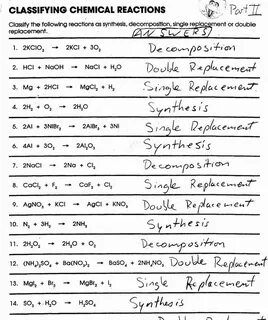 CLASSIFYING CHEMICAL REACTIONS Part II
Classify the following reactions as synthesis, decomposition, single replacement or double
replacement. ANSWERS
1. 2KClO₃ → 2KCl + 3O₂ Decomposition
2. HCl + NaOH → NaCl + H₂O Double Replacement
3. Mg + 2HCl → MgCl₂ + H₂ Single Replacement
4. 2H₂ + O₂ → 2H₂O Synthesis
5. 2Al + 3NiBr₂ → 2AlBr₃ + 3Ni Single Replacement
6. 4Al + 3O₂ → 2Al₂O₃ Synthesis
7. 2NaCl → 2Na + Cl₂ Decomposition
8. CaCl₂ + F₂ → CaF₂ + Cl₂ Single Replacement
9. AgNO₃ + KCl → AgCl + KNO₃ Double Replacement
10. N₂ + 3H₂ → 2NH₃ Synthesis
11. 2H₂O₂ → 2H₂O + O₂ Decomposition
12. (NH₄)₂SO₄ + Ba(NO₃)₂ → BaSO₄ + 2NH₄NO₃ Double Replacement
13. MgI₂ + Br₂ → MgBr₂ + I₂ Single Replacement
14. SO₃ + H₂O → H₂SO₄ Synthesis